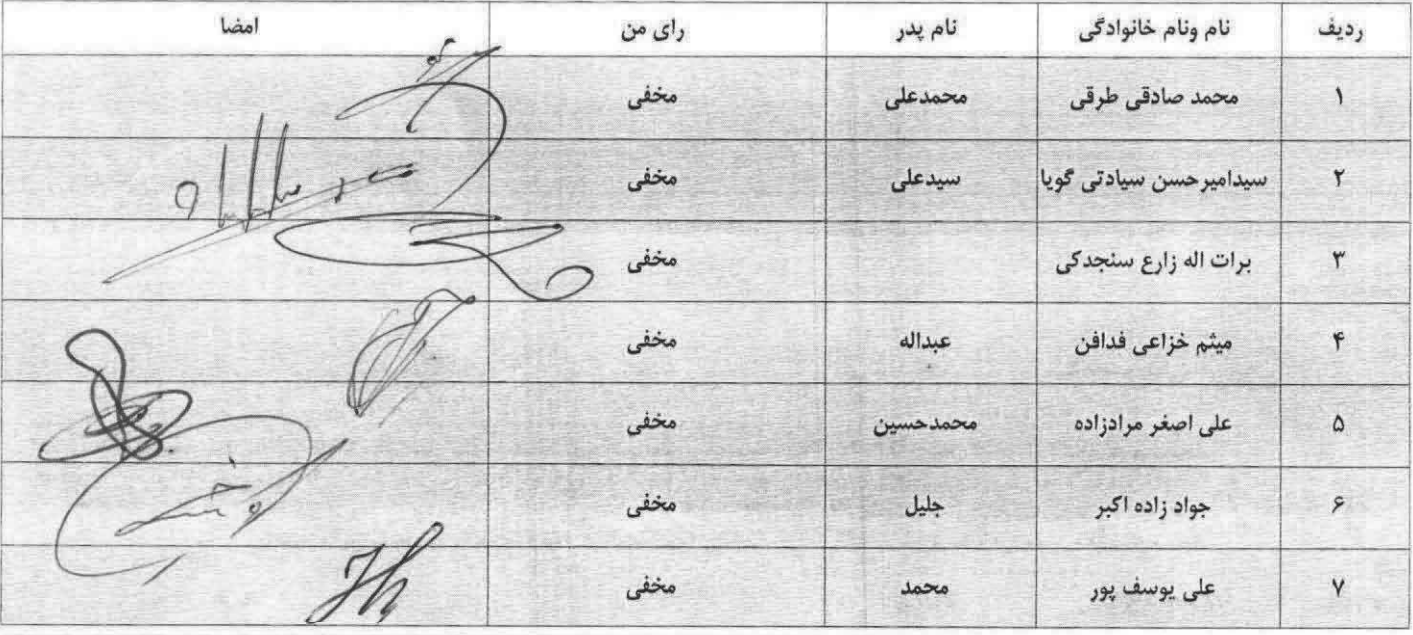 ردیف نام ونام خانوادگی نام پدر رای من امضا
۱ محمد صادقی طرقی محمدعلی مخفی
۲ سیدامیرحسن سیادتی گویا سیدعلی مخفی
۳ برات اله زارع سنجدکی مخفی
۴ میثم خزاعی فدافن عبداله مخفی
۵ علی اصغر مرادزاده محمدحسین مخفی
۶ جواد زاده اکبر جلیل مخفی
۷ علی یوسف پور محمد مخفی